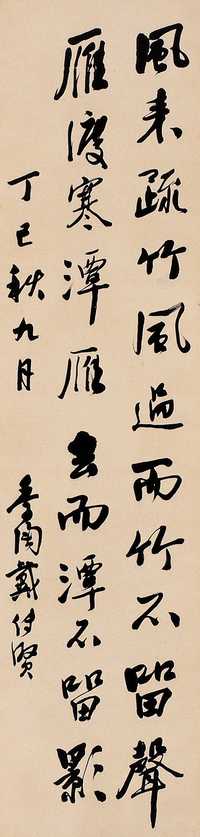 風来疏竹風過而竹不留聲
雁渡寒潭雁去而潭不留影
丁巳秋九月
季陶戴傳賢